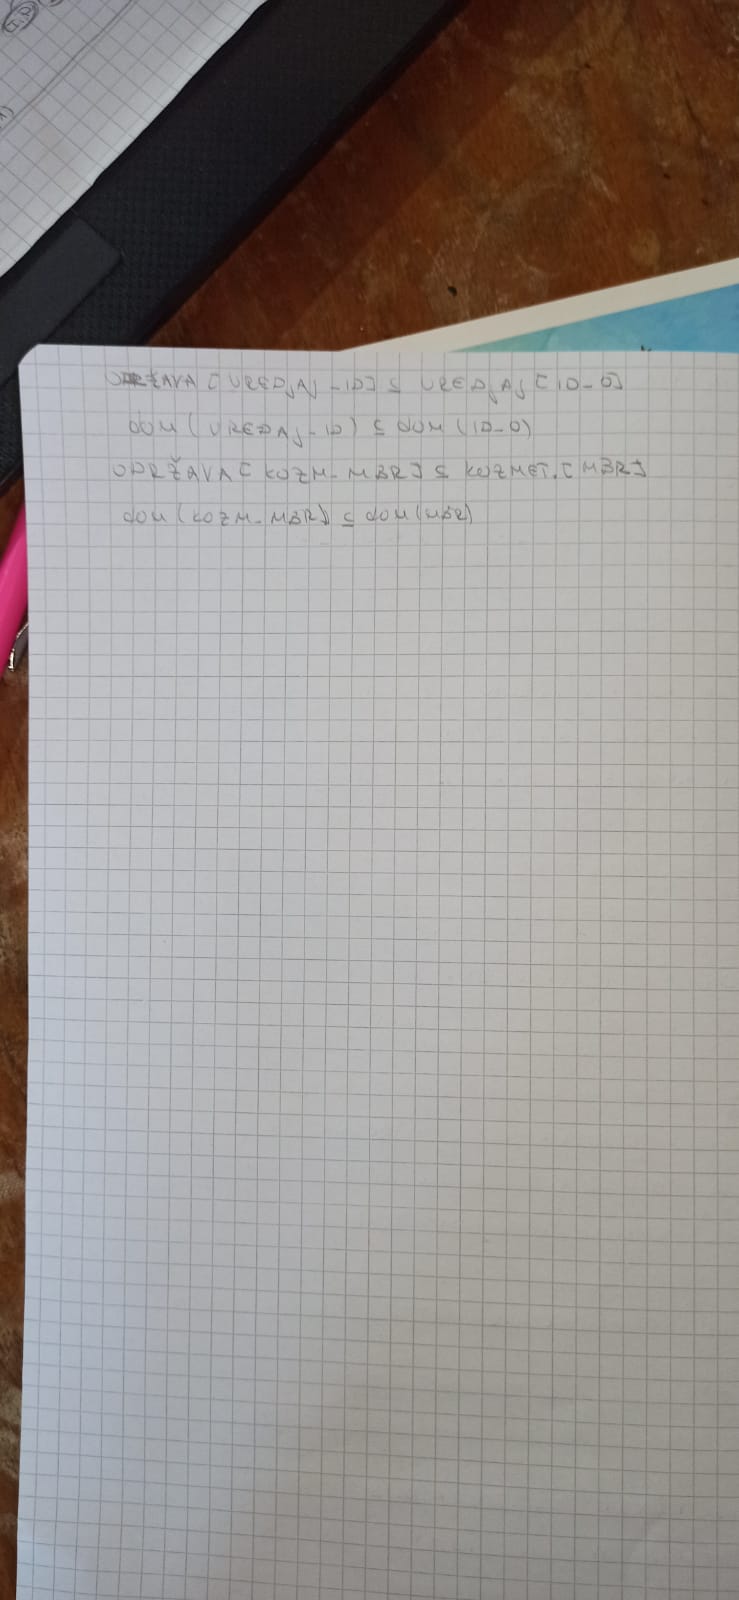 ODRŽAVA [UREDJAJ-ID] ⊆ UREDJAJ [ID-O]
dom (UREDAJ-ID) ⊆ dom (ID-O)
ODRŽAVA [KOZM-MBR] ⊆ KOZMET. [MBR]
dom (KOZM-MBR) ⊆ dom (MBR)